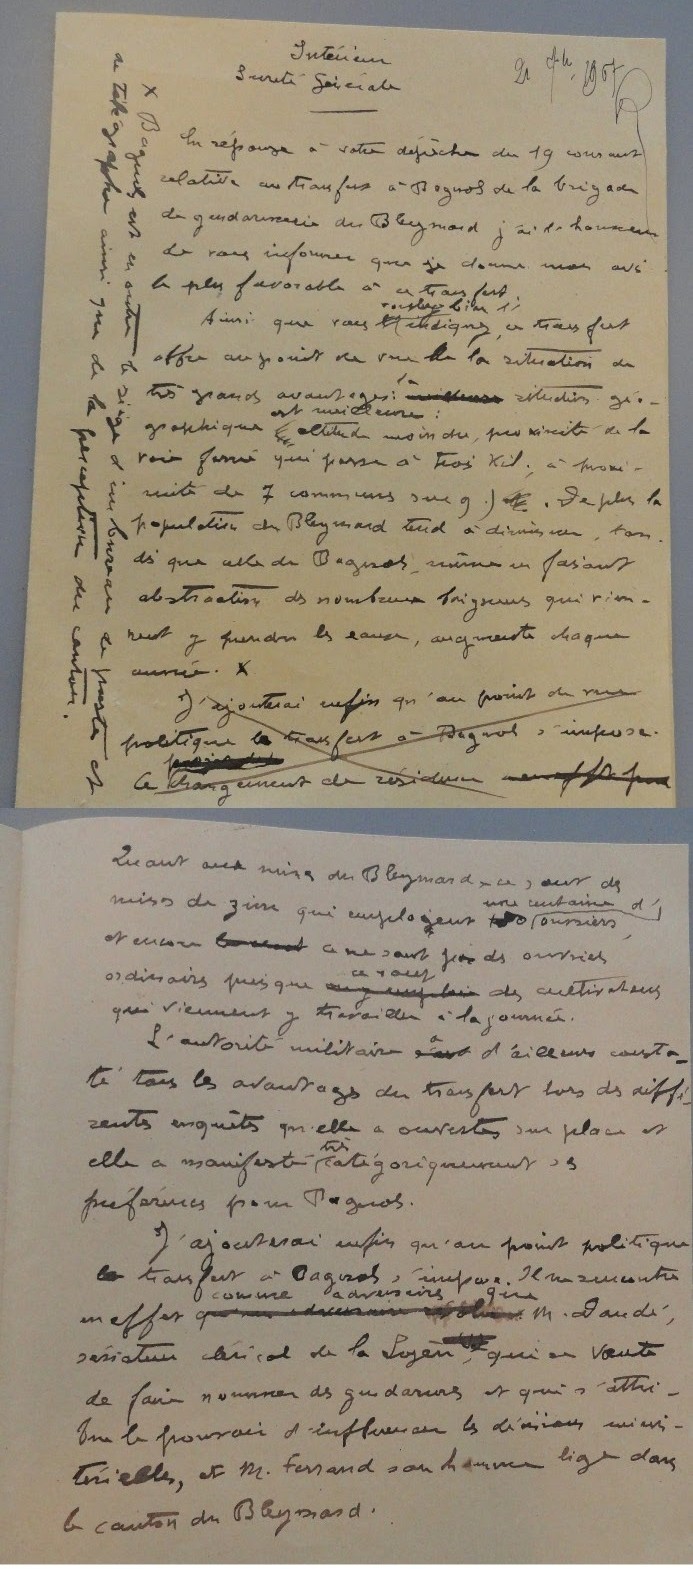 Intérieur
Sureté Générale
21 1907
En réponse à votre dépêche du 19 courant
relative au transfert à Bagnols de la brigade
de gendarmerie du Bleymard j'ai l'honneur
de vous informer que je donne mon avis
le plus favorable à ce transfert.
Ainsi que vous voulez bien l'indiquer, ce transfert
offre au point de vue de la situation de
très grands avantages: la meilleure situation géo-
graphique est meilleure :
altitude moindre, proximité de la
voie ferrée qui passe à trois Kil., à proxi-
mité de 7 communes sur 9. De plus la
population du Bleymard tend à diminuer, tan-
dis que celle de Bagnols, même en faisant
abstraction des nombreux baigneurs qui vien-
nent y prendre les eaux, augmente chaque
année. X
J'ajouterai enfin qu'au point de vue
politique le transfert à Bagnols s'impose.
projet de
Ce changement de résidence
X Bagnols est en outre le siège d'un bureau de postes et
de télégraphe ainsi que de la perception du canton.
Quant aux mines du Bleymard, ce sont des
mines de zinc qui emploient une centaine d'
ouvriers,
et encore ce ne sont pas des ouvriers
ordinaires puisque ce sont des cultivateurs
qui viennent y travailler à la journée.
L'autorité militaire a d'ailleurs consta-
té tous les avantages du transfert lors des diffé-
rentes enquêtes qu'elle a ouvertes sur place et
elle a manifesté très catégoriquement ses
préférences pour Bagnols.
J'ajouterai enfin qu'au point politique
le transfert à Bagnols s'impose. Il ne rencontre
en effet comme adversaires que M. Daudé,
sénateur clérical de la Lozère, qui se vante
de faire nommer des gendarmes et qui s'attri-
bue le pouvoir d'influencer les décisions minis-
térielles, et M. Ferrand son homme lige dans
le canton du Bleymard.